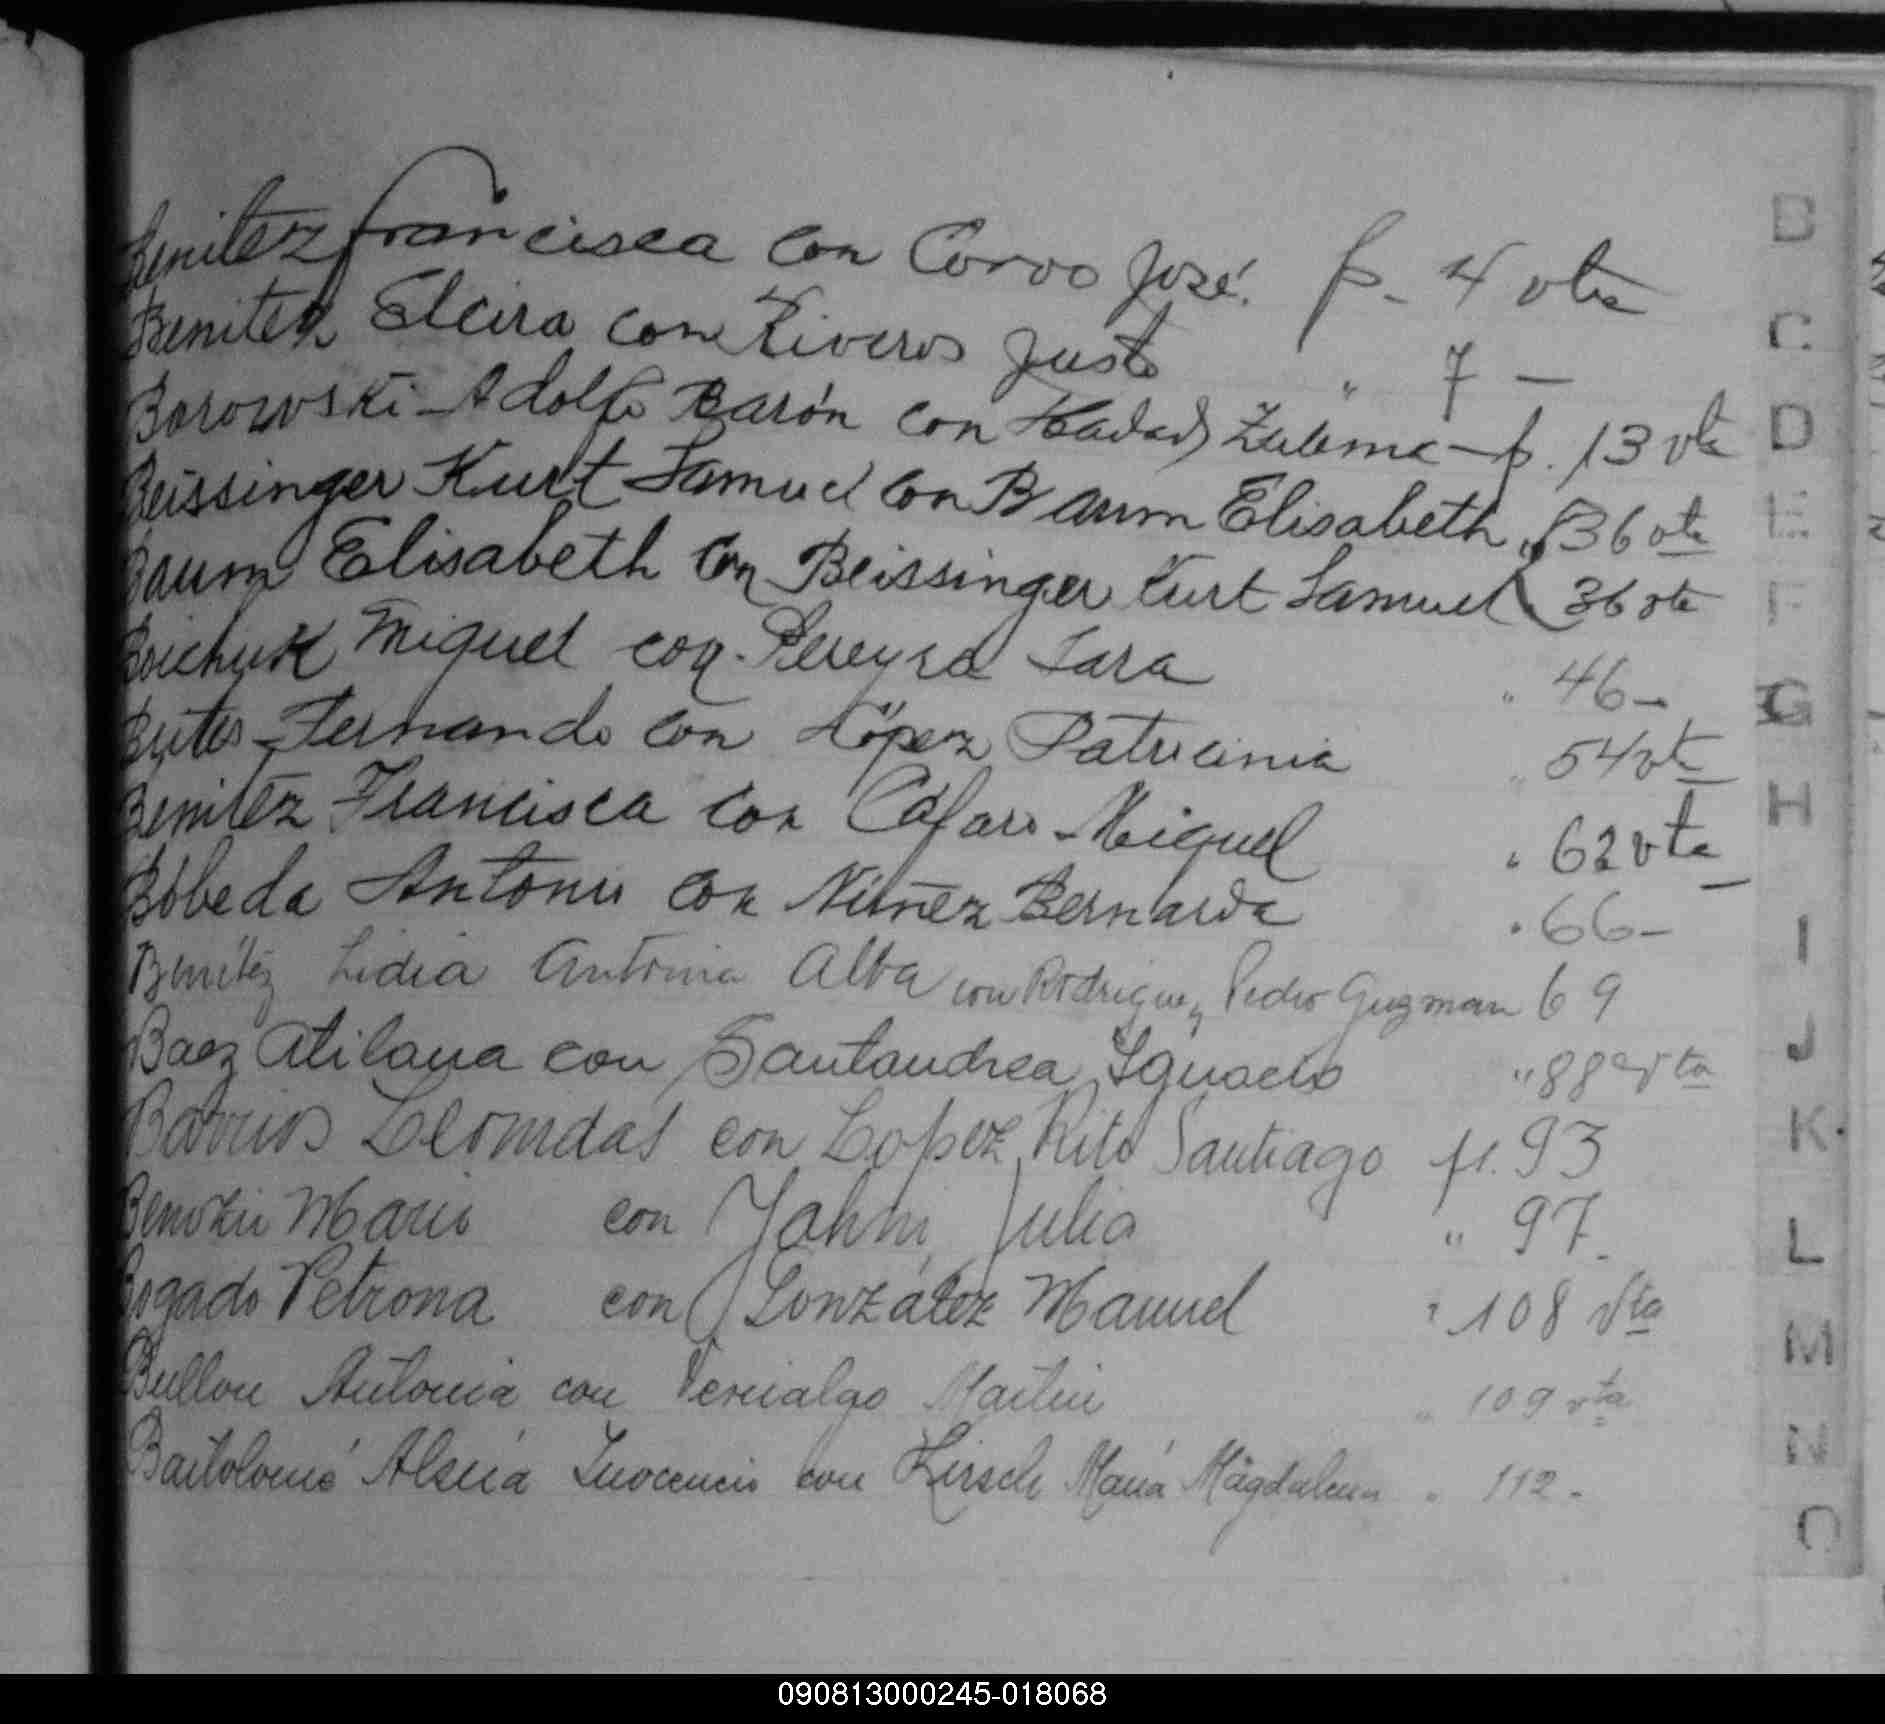 Benitez Francisca con Corvo José. f. 4 vta
Benitez Elcira con Riveros Justo " 7 —
Borowski Adolfo Barón con Hadad Zulema — f. 13 vta
Beissinger Kurt Samuel con Baum Elisabeth " 36 vta
Baum Elisabeth con Beissinger Kurt Samuel 36 vta
Boichuk Miguel con Pereyra Sara " 46 —
Fernando con López Patrocinia " 54 vta
Benítez Francisca con Cáfaro Miguel " 62 vta
Bóbeda Antonio con Núñez Bernarda " 66 —
Benítez Lidia Antonia Alba con Rodriguez Pedro Guzman 69
Baez Atilana con Santandrea Ignacio " 88 vta
Barrios Leonidas con Lopez Rito Santiago fl. 93
Mario con Jahni Julia " 97.
Bogado Petrona con González Manuel " 108 vta
Bullon Antonia con Martin " 109 vta
Bartolomé Alsina Inocencio con Hirsch María Magdalena " 112 -
B
C
D
E
F
G
H
I
J
K
L
M
N
O
090813000245-018068